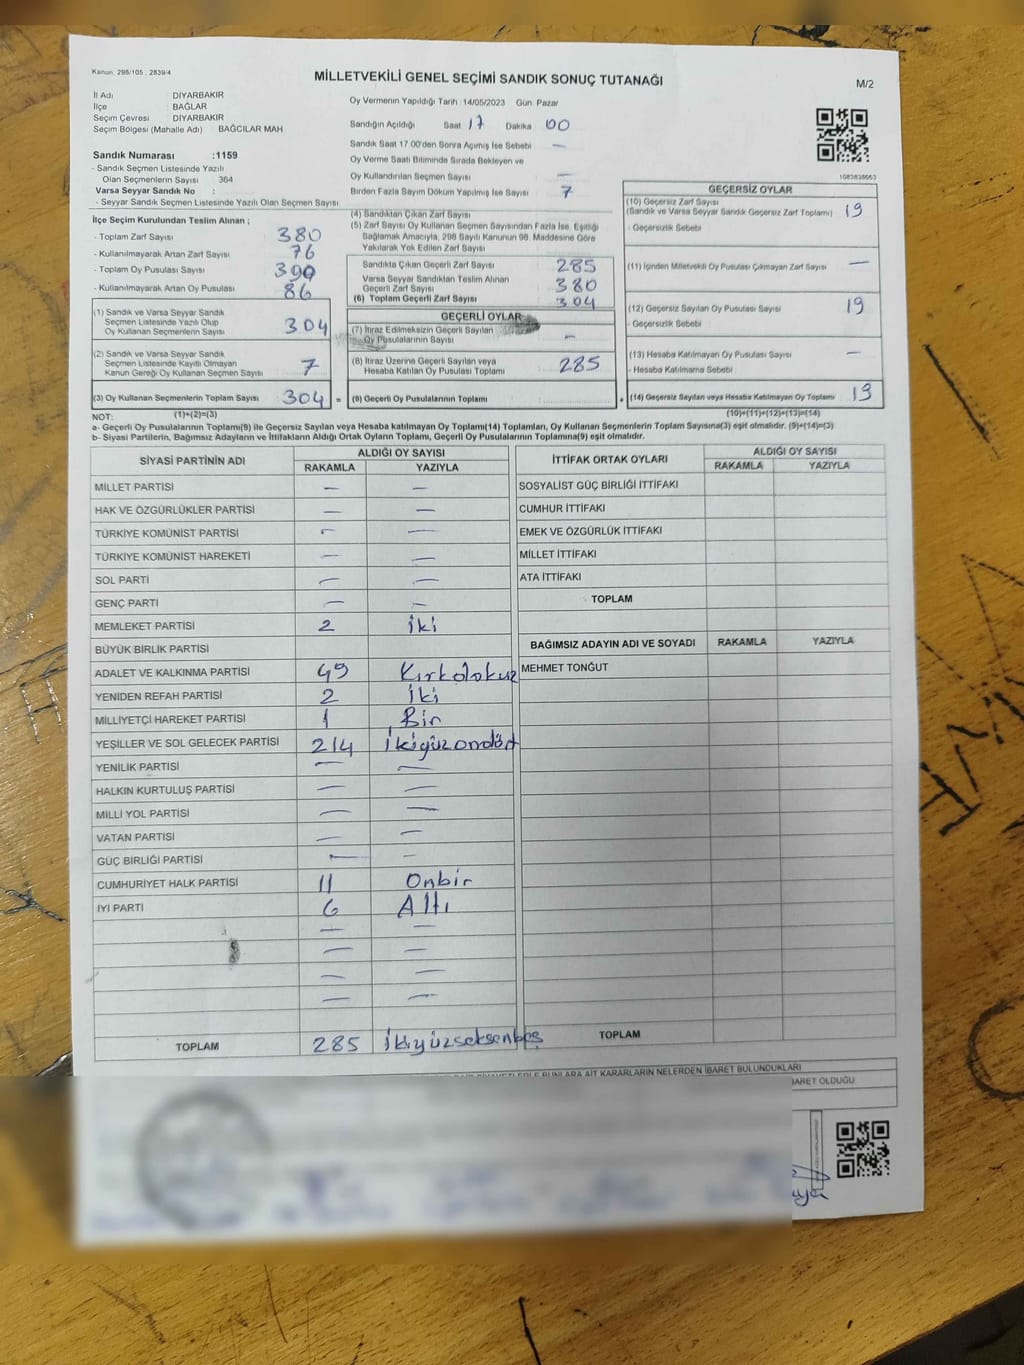 Kanun, 298/105 , 2839/4
MİLLETVEKİLİ GENEL SEÇİMİ SANDIK SONUÇ TUTANAĞI
M/2
İl Adı : DİYARBAKIR
İlçe : BAĞLAR
Seçim Çevresi : DİYARBAKIR
Seçim Bölgesi (Mahalle Adı) : BAĞCILAR MAH
Sandık Numarası :1159
- Sandık Seçmen Listesinde Yazılı
Olan Seçmenlerin Sayısı : 364
Varsa Seyyar Sandık No :
- Seyyar Sandık Seçmen Listesinde Yazılı Olan Seçmen Sayısı :
Oy Vermenin Yapıldığı Tarih 14/05/2023 Gün Pazar
Sandığın Açıldığı Saat 17 Dakika 00
Sandık Saat 17:00'den Sonra Açımış İse Sebebi —
Oy Verme Saati Bitiminde Sırada Bekleyen ve
Oy Kullandırılan Seçmen Sayısı —
Birden Fazla Sayım Döküm Yapılmış İse Sayısı 7
1083838663
İlçe Seçim Kurulundan Teslim Alınan ;
- Toplam Zarf Sayısı : 380
- Kullanılmayarak Artan Zarf Sayısı : 76
- Toplam Oy Pusulası Sayısı : 390
- Kullanılmayarak Artan Oy Pusulası : 86
(1) Sandık ve Varsa Seyyar Sandık
Seçmen Listesinde Yazılı Olup
Oy Kullanan Seçmenlerin Sayısı : 304
(2) Sandık ve Varsa Seyyar Sandık
Seçmen Listesinde Kayıtlı Olmayan
Kanun Gereği Oy Kullanan Seçmen Sayısı : 7
(3) Oy Kullanan Seçmenlerin Toplam Sayısı : 304 =
(4) Sandıktan Çıkan Zarf Sayısı
(5) Zarf Sayısı Oy Kullanan Seçmen Sayısından Fazla İse, Eşitliği
Sağlamak Amacıyla, 298 Sayılı Kanunun 98. Maddesine Göre
Yakılarak Yok Edilen Zarf Sayısı
Sandıkta Çıkan Geçerli Zarf Sayısı : 285
Varsa Seyyar Sandıktan Teslim Alınan
Geçerli Zarf Sayısı : 380
(6) Toplam Geçerli Zarf Sayısı : 304
GEÇERLİ OYLAR
(7) İtiraz Edilmeksizin Geçerli Sayılan
Oy Pusulalarının Sayısı : —
(8) İtiraz Üzerine Geçerli Sayılan veya
Hesaba Katılan Oy Pusulası Toplamı : 285
(9) Geçerli Oy Pusulalarının Toplamı : +
GEÇERSİZ OYLAR
(10) Geçersiz Zarf Sayısı
(Sandık ve Varsa Seyyar Sandık Geçersiz Zarf Toplamı) : 19
- Geçersizlik Sebebi :
(11) İçinden Milletvekili Oy Pusulası Çıkmayan Zarf Sayısı : —
(12) Geçersiz Sayılan Oy Pusulası Sayısı : 19
- Geçersizlik Sebebi :
(13) Hesaba Katılmayan Oy Pusulası Sayısı : —
- Hesaba Katılmama Sebebi :
(14) Geçersiz Sayılan veya Hesaba Katılmayan Oy Toplamı : 19
NOT: (1)+(2)=(3) (10)+(11)+(12)+(13)=(14)
a- Geçerli Oy Pusulalarının Toplamı(9) ile Geçersiz Sayılan veya Hesaba katılmayan Oy Toplamı(14) Toplamları, Oy Kullanan Seçmenlerin Toplam Sayısına(3) eşit olmalıdır. (9)+(14)=(3)
b- Siyasi Partilerin, Bağımsız Adayların ve İttifakların Aldığı Ortak Oyların Toplamı, Geçerli Oy Pusulalarının Toplamına(9) eşit olmalıdır.
SİYASİ PARTİNİN ADI ALDIĞI OY SAYISI
RAKAMLA YAZIYLA
MİLLET PARTİSİ — —
HAK VE ÖZGÜRLÜKLER PARTİSİ — —
TÜRKİYE KOMÜNİST PARTİSİ — —
TÜRKİYE KOMÜNİST HAREKETİ — —
SOL PARTİ — —
GENÇ PARTİ — —
MEMLEKET PARTİSİ 2 İki
BÜYÜK BİRLİK PARTİSİ
ADALET VE KALKINMA PARTİSİ 49 Kırkdokuz
YENİDEN REFAH PARTİSİ 2 İki
MİLLİYETÇİ HAREKET PARTİSİ 1 Bir
YEŞİLLER VE SOL GELECEK PARTİSİ 214 İkiyüzondört
YENİLİK PARTİSİ — —
HALKIN KURTULUŞ PARTİSİ — —
MİLLİ YOL PARTİSİ — —
VATAN PARTİSİ — —
GÜÇ BİRLİĞİ PARTİSİ — —
CUMHURİYET HALK PARTİSİ 11 Onbir
İYİ PARTİ 6 Altı
— —
— —
— —
— —
TOPLAM 285 İkiyüzseksenbeş
İTTİFAK ORTAK OYLARI ALDIĞI OY SAYISI
RAKAMLA YAZIYLA
SOSYALİST GÜÇ BİRLİĞİ İTTİFAKI
CUMHUR İTTİFAKI
EMEK VE ÖZGÜRLÜK İTTİFAKI
MİLLET İTTİFAKI
ATA İTTİFAKI
TOPLAM
BAĞIMSIZ ADAYIN ADI VE SOYADI RAKAMLA YAZIYLA
MEHMET TONĞUT
TOPLAM
BUNLARA AİT KARARLARIN NELERDEN İBARET BULUNDUKLARI